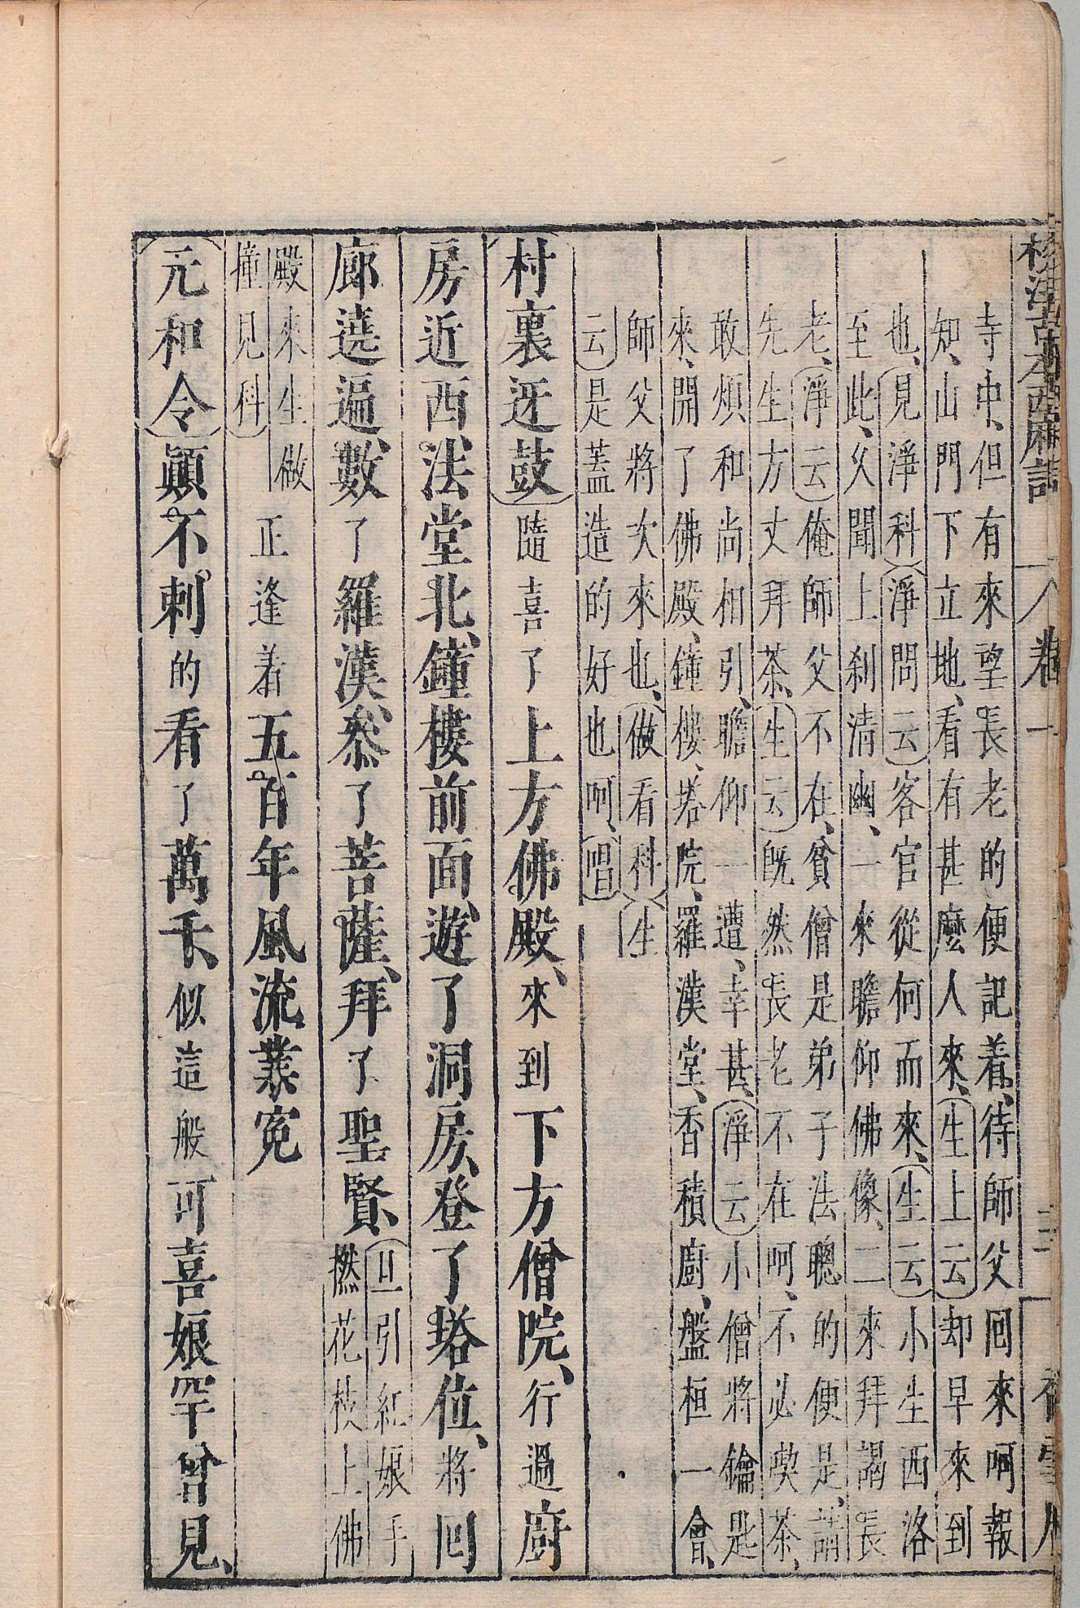 校注古本西廂記 卷一 三
寺中但有來望長老的便記着待師父回來呵報
知山門下立地看有甚麼人來生上云却早來到
也見淨科淨問云客官從何而來生云小生西洛
至此久聞上刹清幽一來瞻仰佛像二來拜謁長
老淨云俺師父不在貧僧是弟子法聰的便是請
先生方丈拜茶生云既然長老不在呵不必喫茶
敢煩和尚相引瞻仰一遭幸甚淨云小僧將鑰匙
來開了佛殿鐘樓塔院羅漢堂香積廚盤桓一會
師父將次來也做看科生
云是蓋造的好也呵唱
村裏迓鼓隨喜了上方佛殿來到下方僧院行過廚
房近西法堂北鐘樓前面遊了洞房登了塔位將回
廊遶遍數了羅漢叅了菩薩拜了聖賢旦引紅娘手撚花枝上佛
殿來生做撞見科正逢着五百年風流業冤
元和令顛不剌的看了萬千似這般可喜娘罕曾見